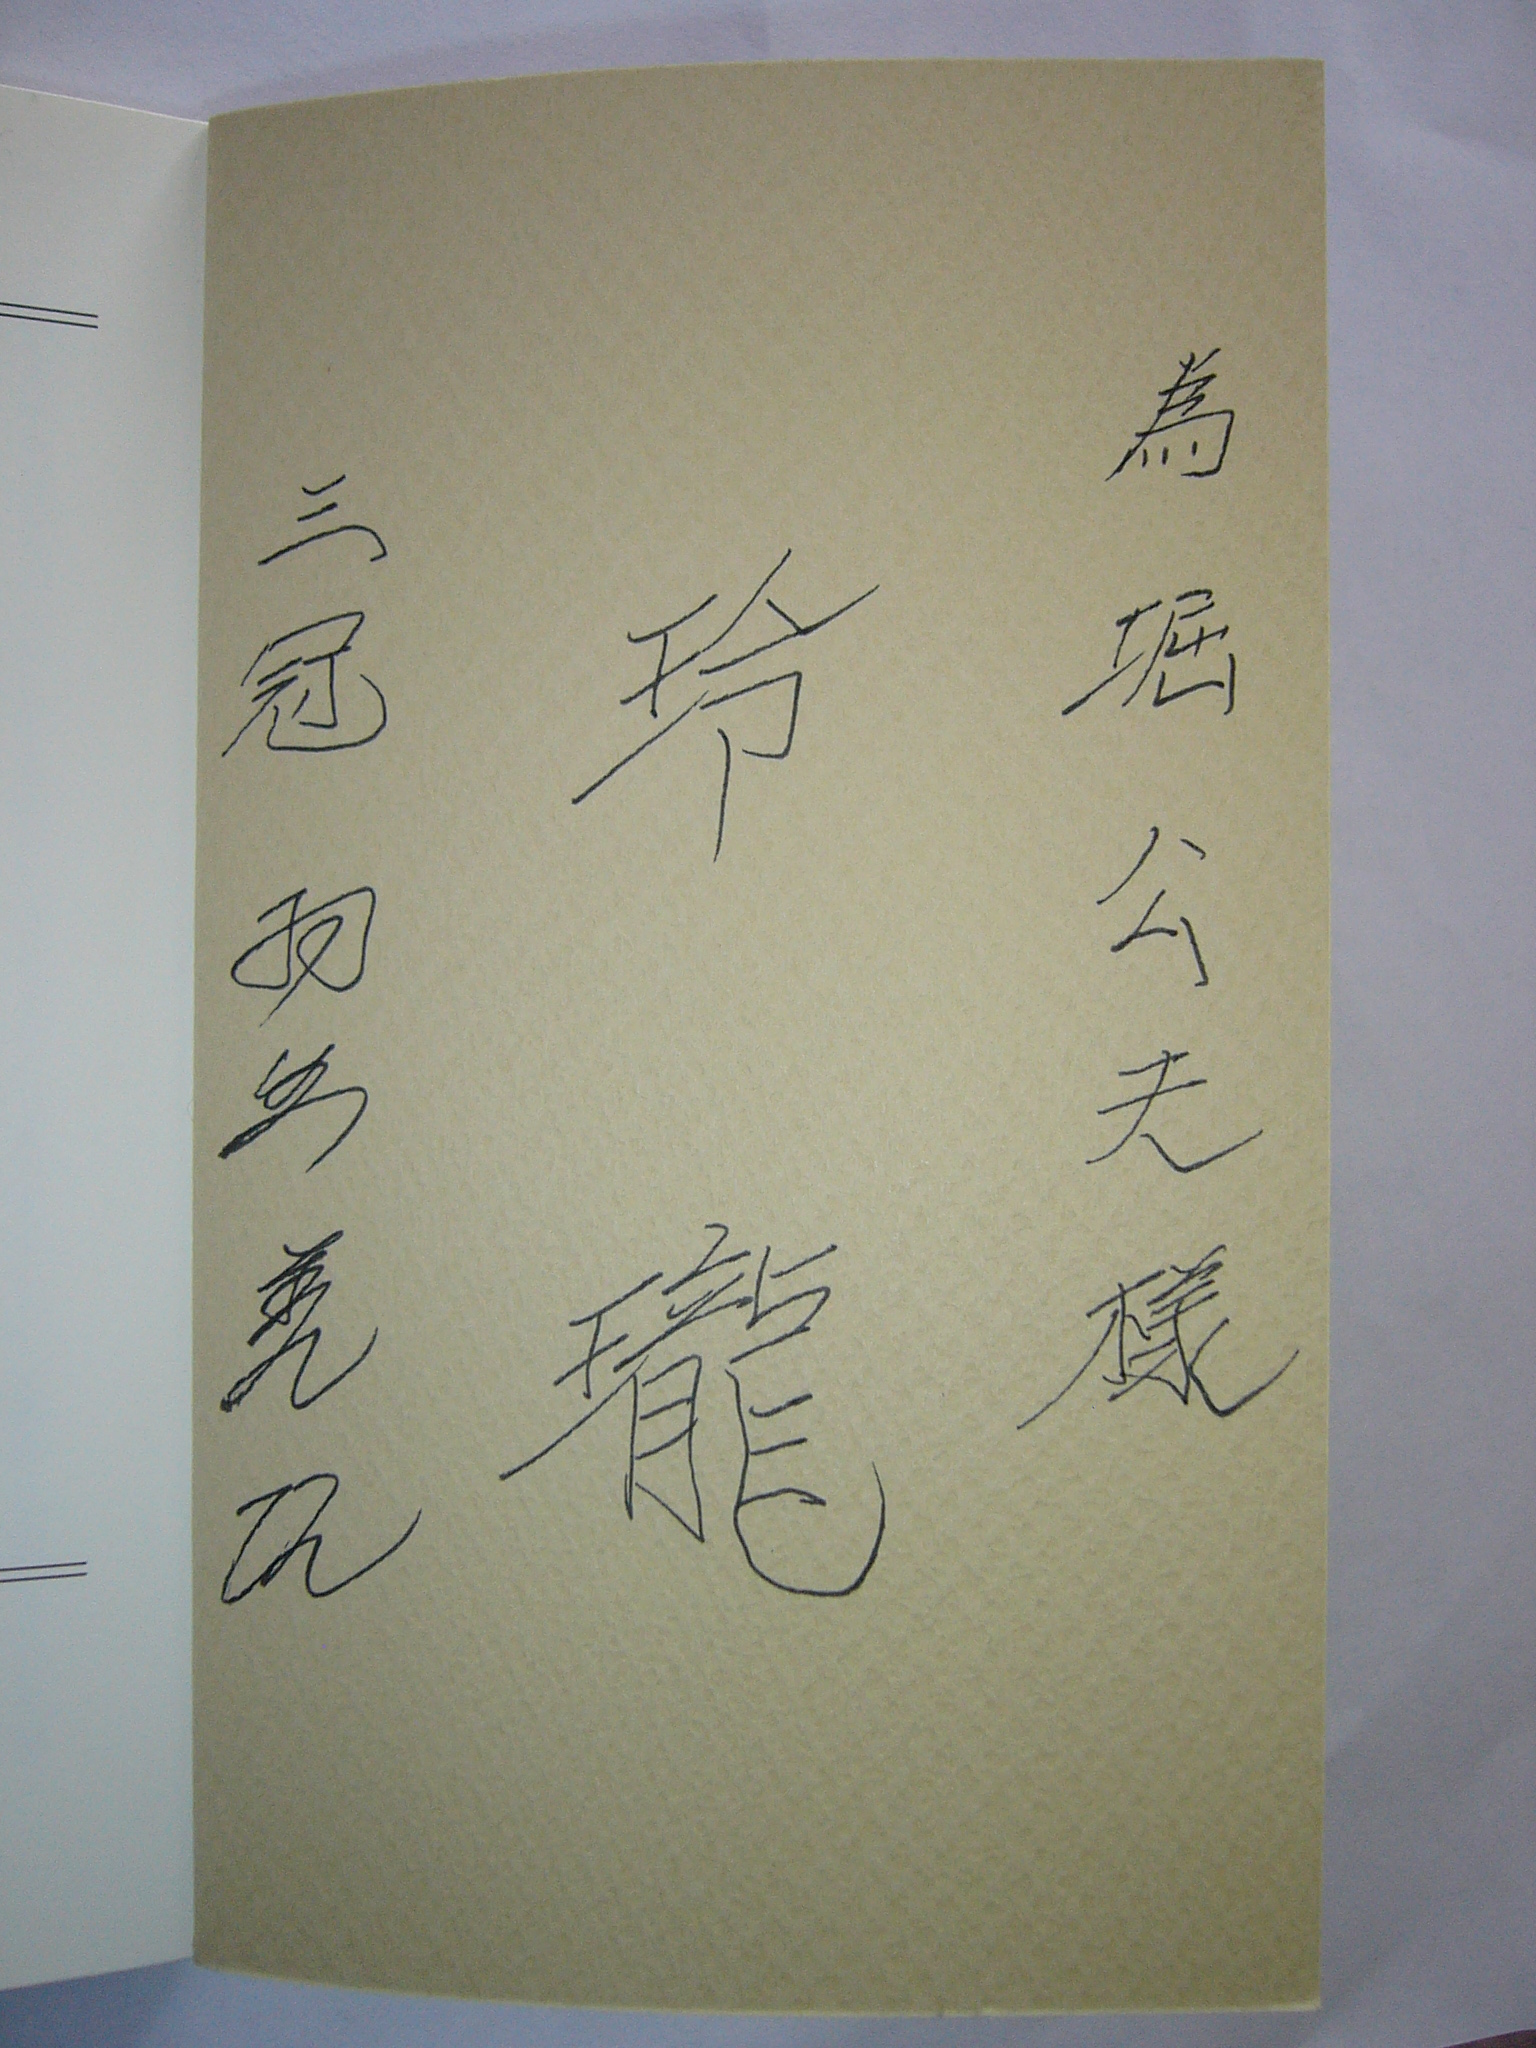 為堀公夫様
玲瓏
三冠 羽生善治